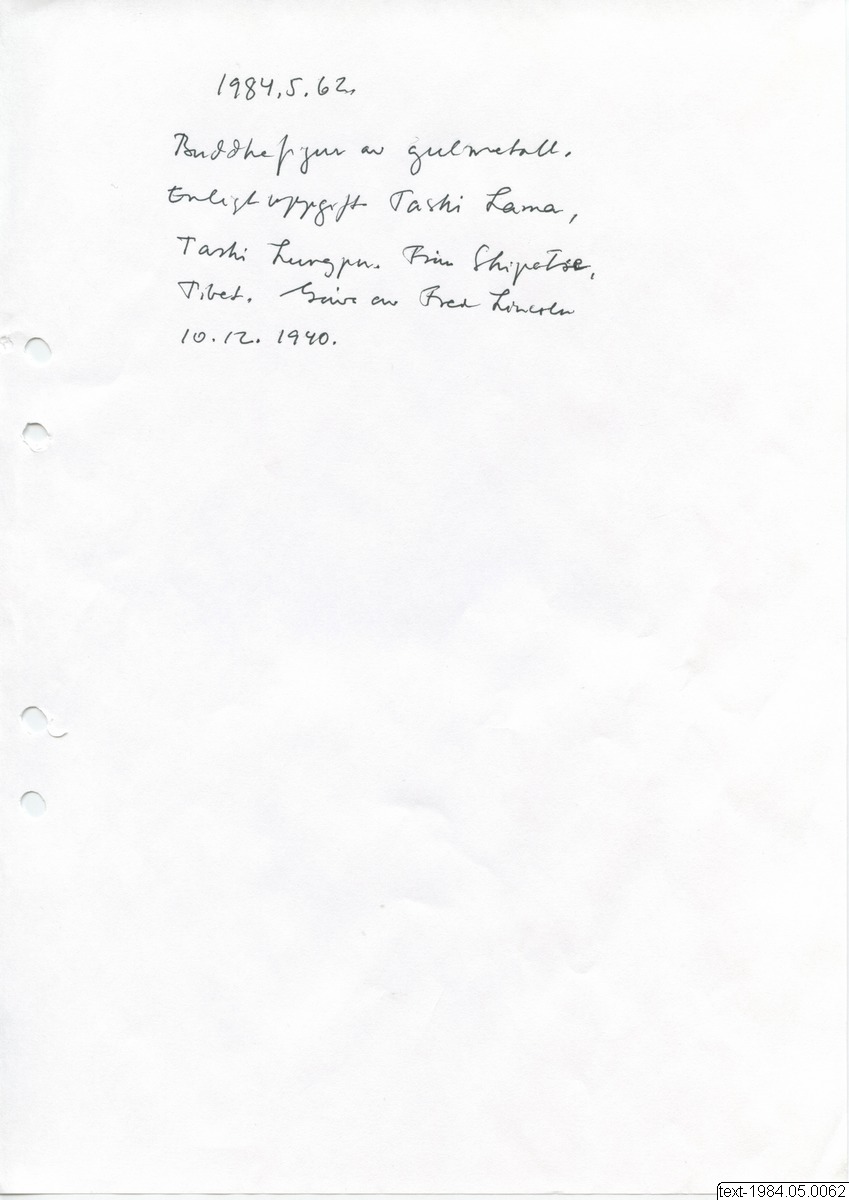 1984.5.62.
Buddhafigur av gulmetall.
Enligt uppgift Tashi Lama,
Tashi Lungpu. Från Shigatse,
Tibet. Gåva av Fred Lincoln
10.12.1940.
text-1984.05.0062